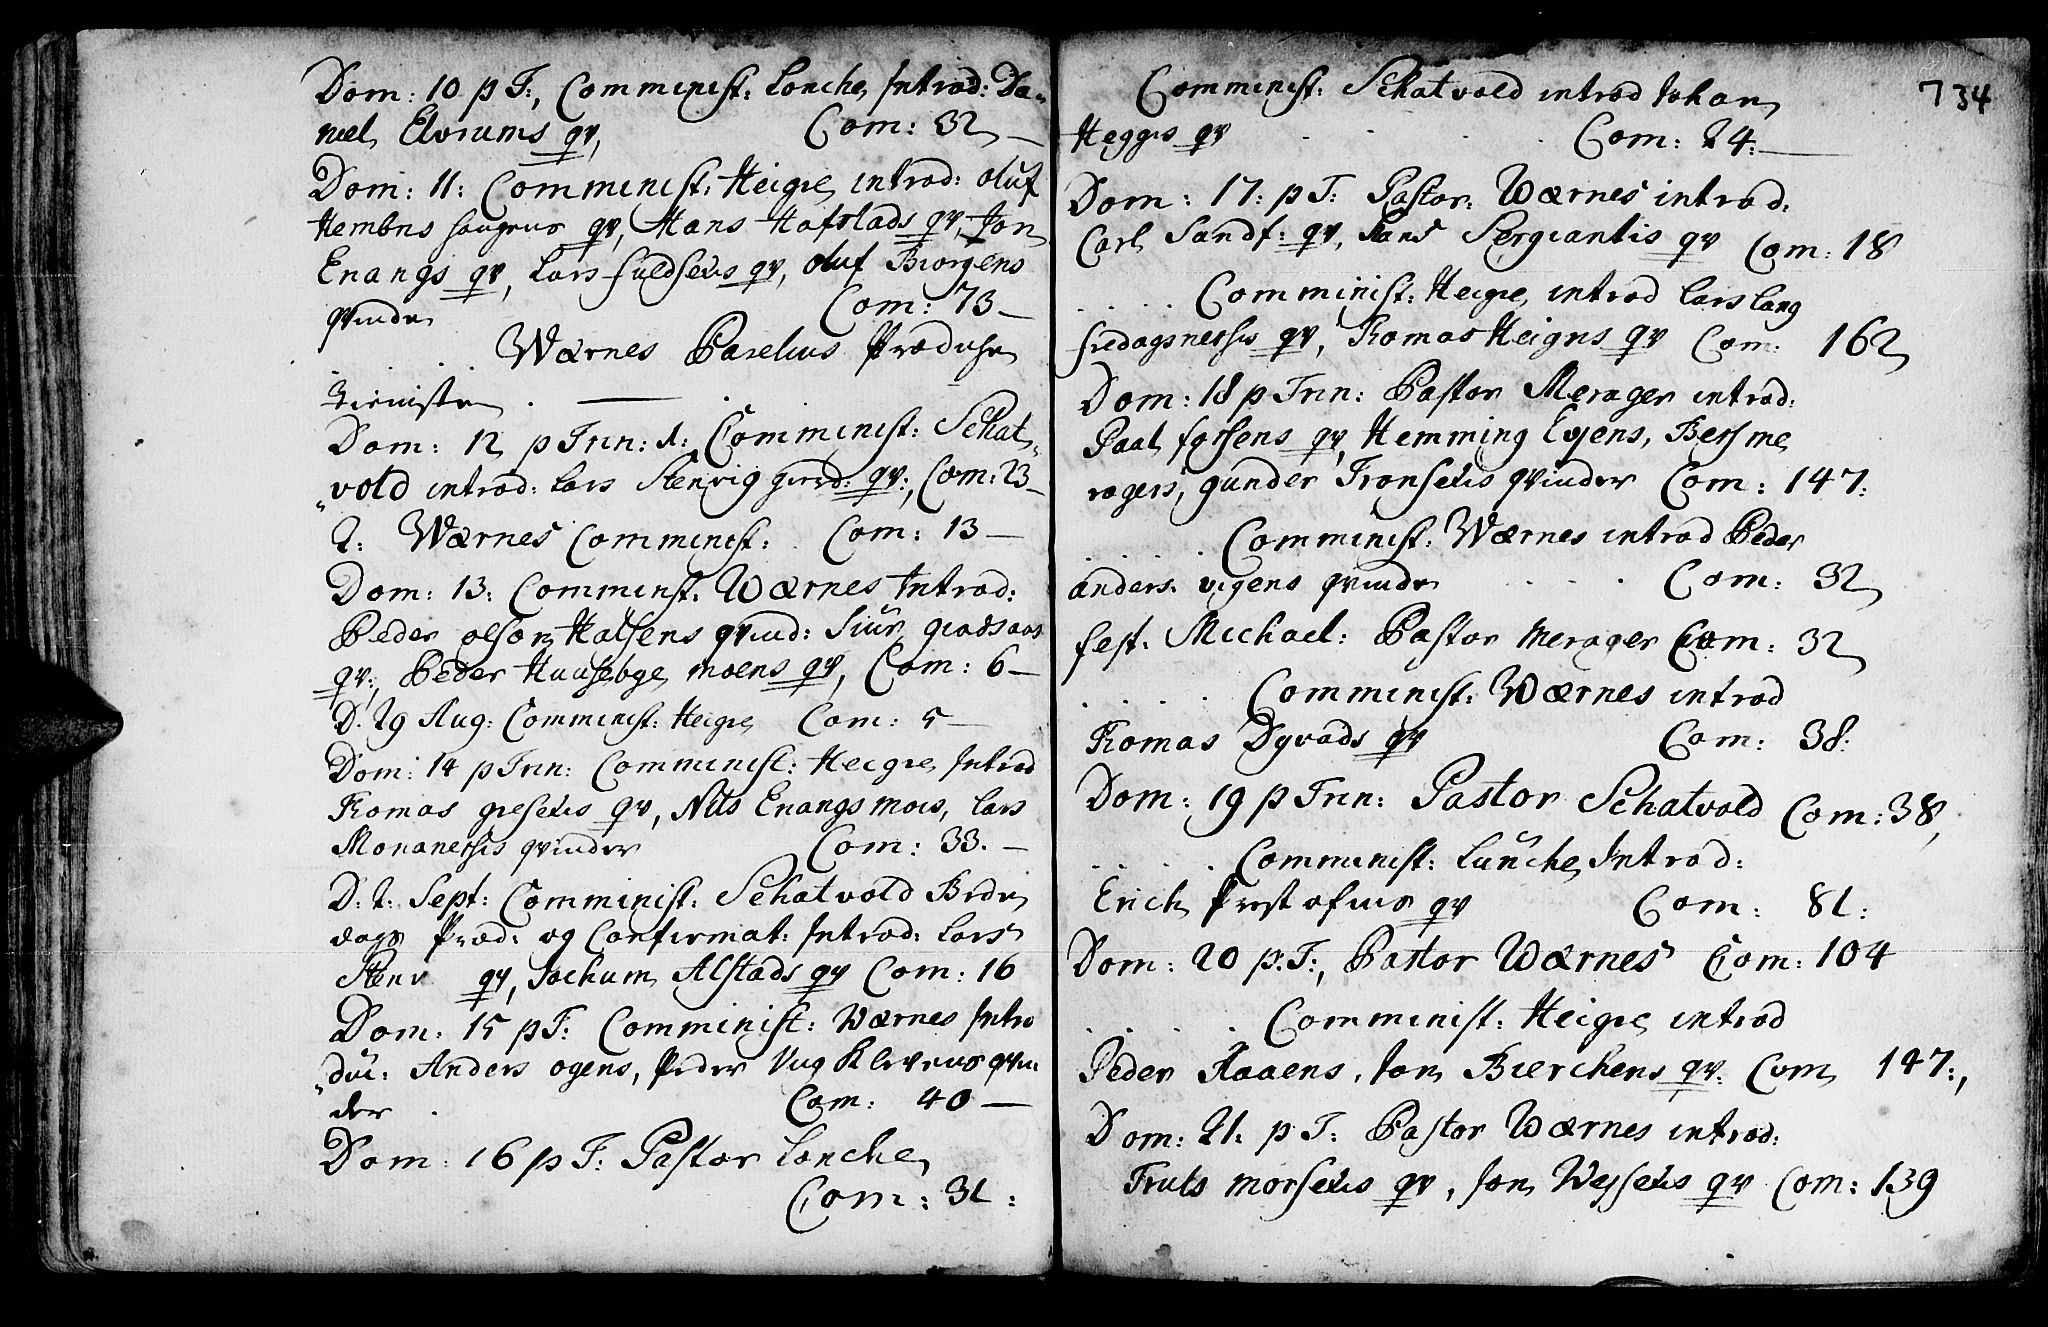 Dom: 10 p T:, Comminist: Lonche Introd: Da-
niel Elvrums qv, Com: 32 —
Dom: 11: Comminist: Heigre introd: Oluf
Hembre haugens qv, Hans Hafstads qv, Jon
Enangs qv, Lars fuldsetis qv, Oluf Biorgens
qvinde Com: 73 —
Wærnes Parelius Prædise
Dom: 12 p Trin: 1: Comminist: Schat-
vold introd: Lars Stenvig qv:, Com: 23 —
2: Wærnes Comminist: Com: 13 —
Dom: 13: Comminst: Wærnes Introd:
Peder olson Halsens qvind: Siur
qv:, Peder Huusebye moens qv, Com: 6 —
D. 29 Aug: Comminist: Heigre Com: 5 —
Dom: 14 p Trin: Comminist: Heigre Introd
Tomas gresetis qv, Nils Enangs mois, Lars
Monanetsis qvinder Com: 33. —
D. 2. Sept: Comminist: Schatvold Bede
dags Præd: og Confirmat: Introd: Lars
Stenv qv, Jochum Alstads qv Com: 16
Dom: 15 p T: Comminist: Wærnes Intro
duc: Anders ogens, Peder Klevens qvin
der Com: 40 —
Dom: 16 p T: Pastor Lonche
Com: 31:
734
Comminist: Schatvold introd Johan
Hegges qv Com: 24: —
Dom: 17: p T: Pastor: Wærnes introd:
Carl Sandf: qv, Sergiantis qv Com: 18
Comminist: Heigre introd Lars lang
fredagsnetsis qv, Tomas Heigres qv Com: 162
Dom: 18 p Trin: Pastor Merager introd:
Paal forsens qv, Hemming Eyens, Bersme
ragers, gunder Tronsetis qvinder Com: 147:
Comminist: Wærnes introd Peder
anders: vigens qvinde Com: 32
fest. Michael: Pastor Merager Com: 32
Comminist: Wærnes introd
Tomas Dyvads qv Com: 38:
Dom: 19 p Trin: Pastor Schatvold Com: 38,
Comminist: Lunche Introd:
Erich Prestmoens qv Com: 81:
Dom: 20 p. T:, Pastor Wærnes Com: 104
Comminist: Heigre introd
Peder Aaaens, Jon Bierchens qv: Com 147:,
Dom: 21: p T: Pastor Wærnes introd:
Truls morsetis qv, Jon Weysetis qv Com: 139